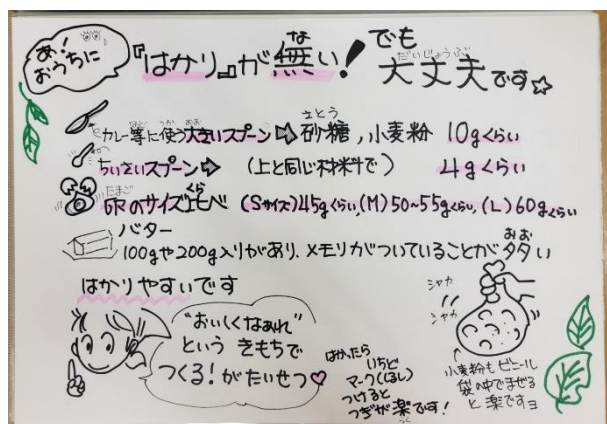 あ!
おうちに
『はかり』が無い!
な
でも
大丈夫です☆
だいじょうぶ
カレー等に使う大きいスプーン⇒砂糖,小麦粉 10gくらい
など つか おお さとう
ちいさいスプーン⇒ (上と同じ材料で) 4gくらい
卵のサイズ比べ (Sサイズ)45gくらい,(M)50~55gくらい,(L)60gくらい
たまご くら
バター
100gや200g入りがあり,メモリがついていることが多い
おお
はかりやすいです
"おいしくなあれ"
という きもちで
つくる!がたいせつ♡
はかったら
いちど
マーク(しるし)
つけると
つぎが楽です!
シャカ
シャカ
小麦粉もビニール
袋の中でまぜる
と楽ですヨ